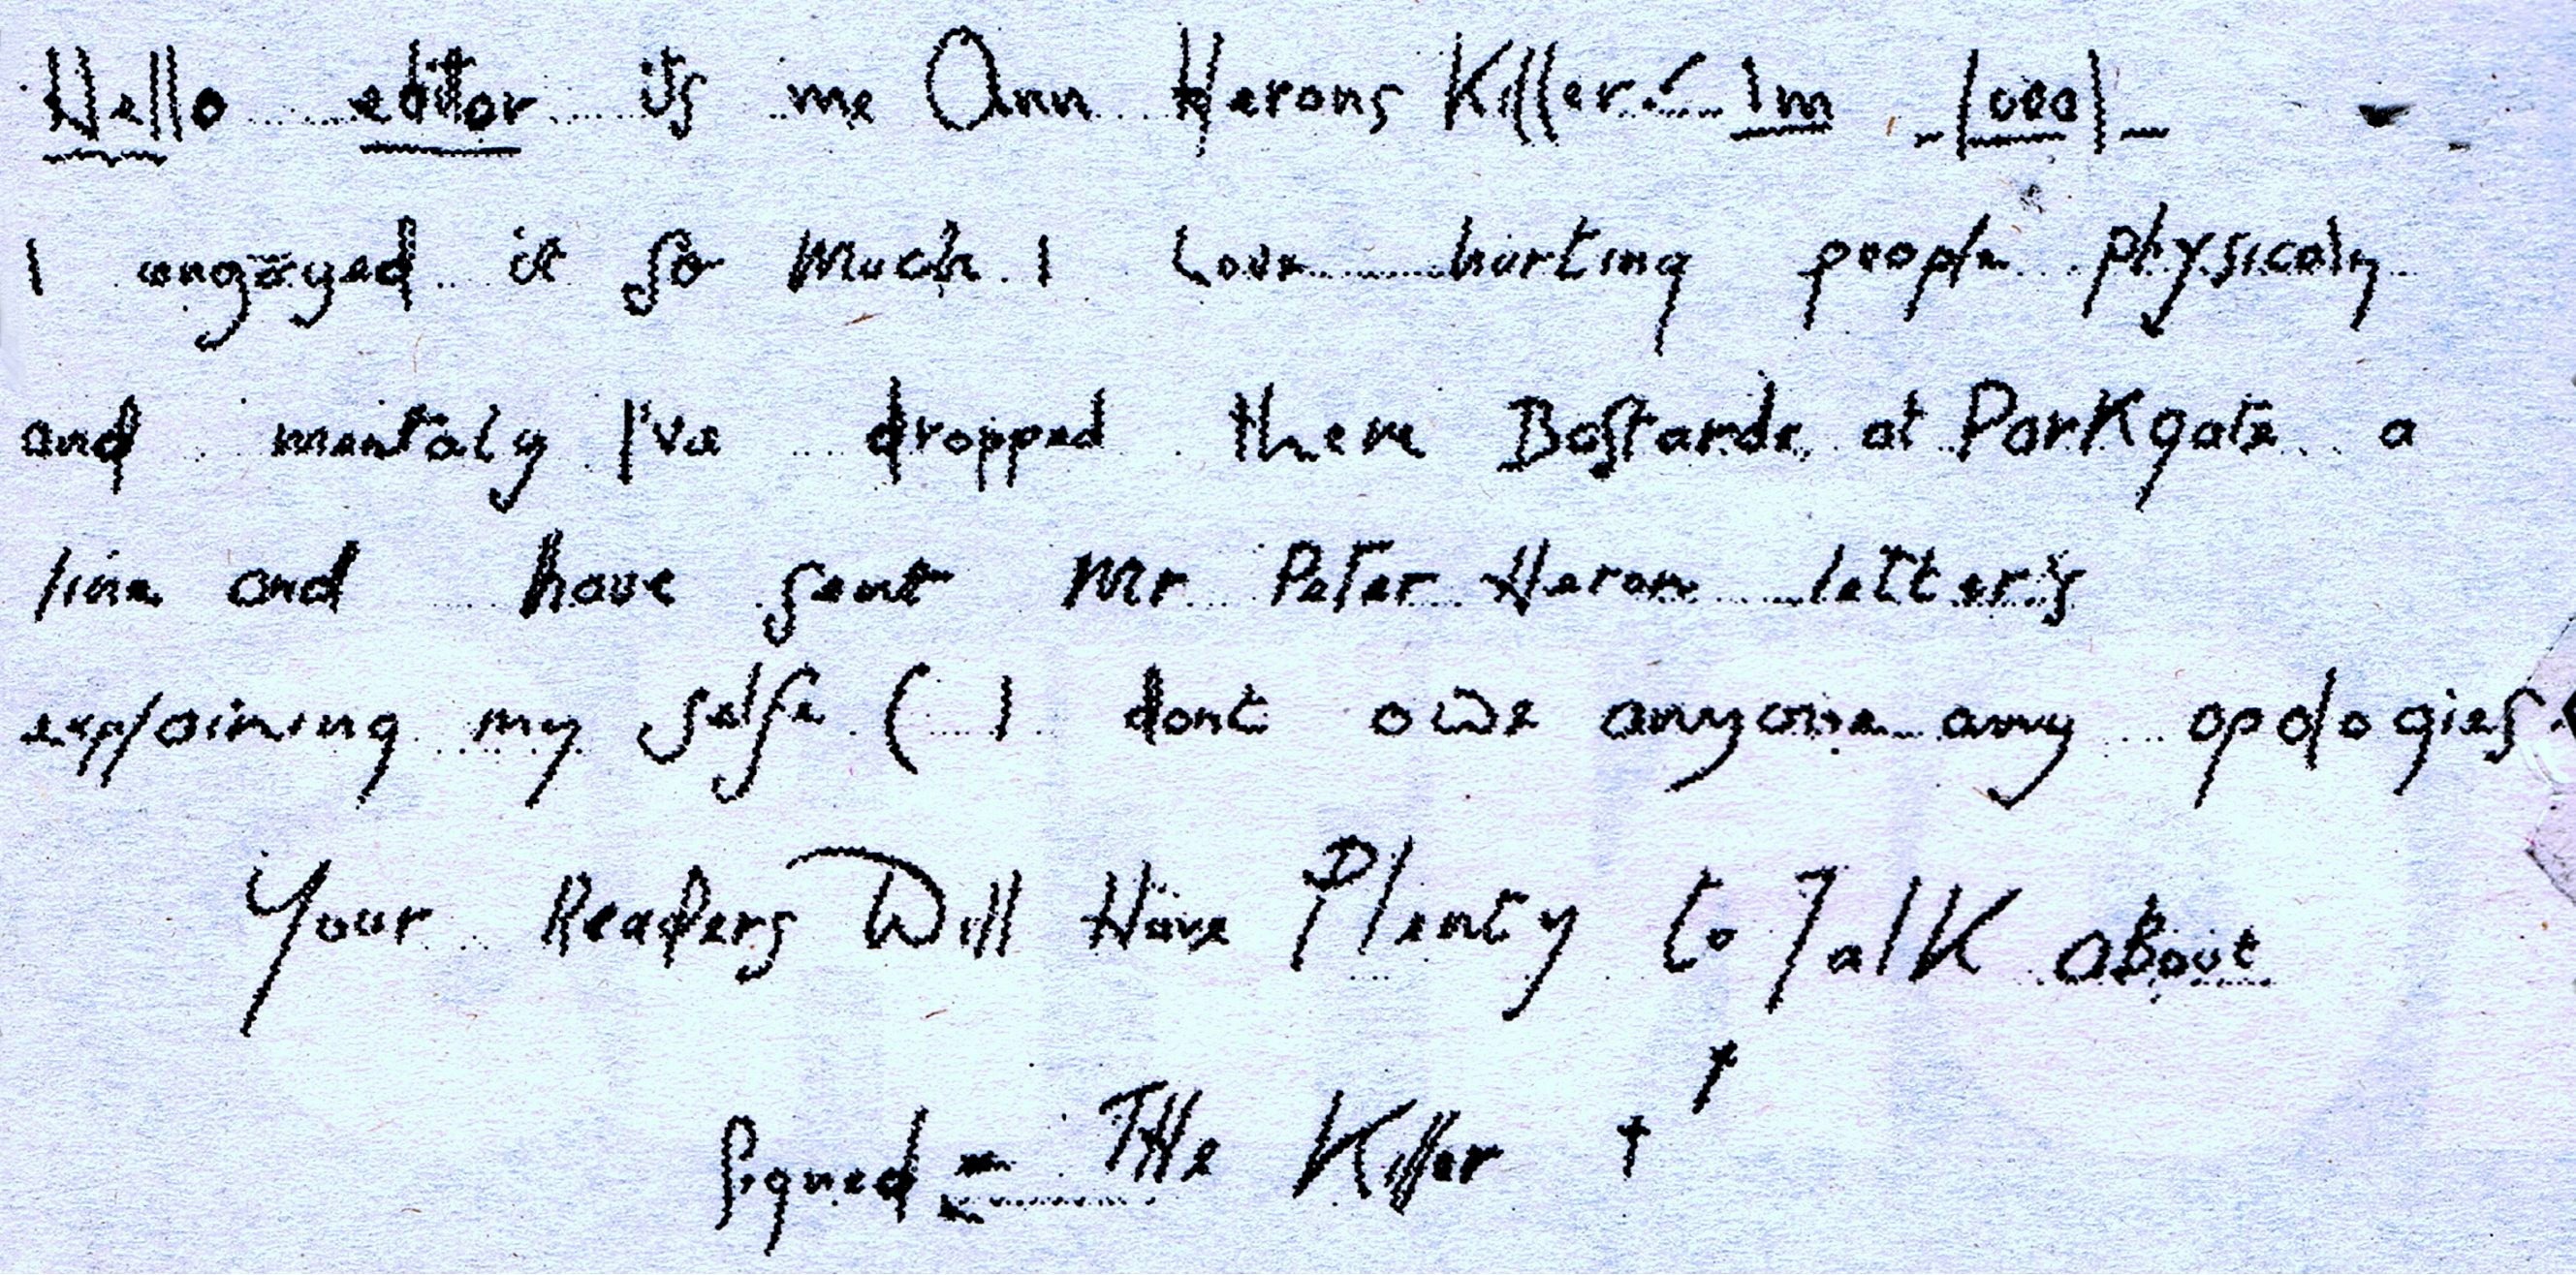 Hello editor its me Ann Herons Killer. Im local
I engoyed it so Much. I Love hurting people physicaly
and mentaly I've dropped there Bastards at ParKgate a
line and have sent Mr Peter Heron letters
explaining my selfe ( I dont owe anyone any apologies
Your Readers Will Have Plenty to TalK aBout
Signed = THe Killer